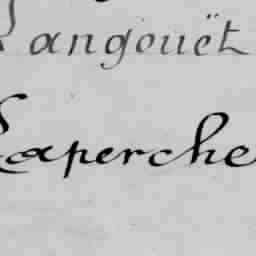 Langouët
Laperche